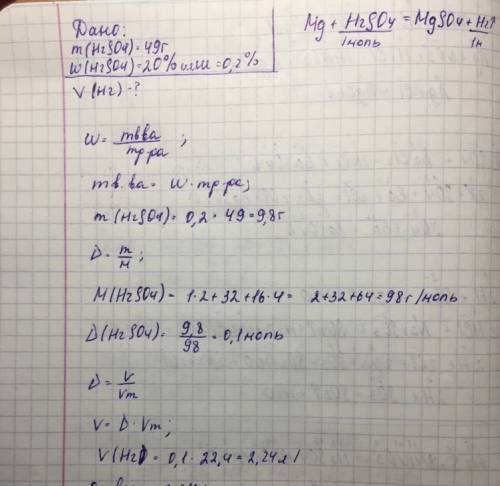 Дано:
m(H2SO4)=49г
W(H2SO4)=20% или =0,2%
V(H2)-?
Mg + H2SO4 = MgSO4 + H2↑
1моль 1м
W = mв.ва / mр.ра ;
mв.ва = W · mр.ра;
m(H2SO4)= 0,2 · 49 = 9,8г
D = m/M ;
M(H2SO4) = 1·2+32+16·4 = 2+32+64=98г/моль
D(H2SO4)= 9,8/98 = 0,1моль
D = V/Vm
V = D · Vm;
V(H2) = 0,1 · 22,4 = 2,24л